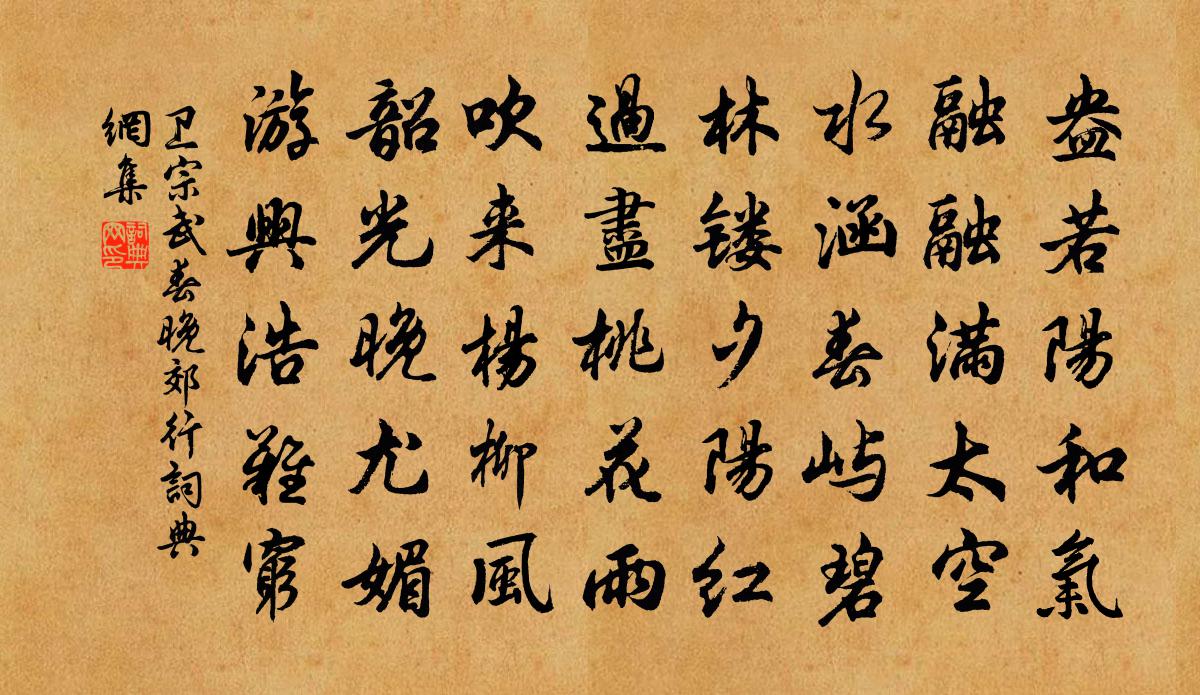 盎若陽和氣
融融滿太空
水涵春屿碧
林镂夕陽红
過盡桃花雨
吹来楊柳風
韶光晚尤媚
游興浩難窮
卫宗武春晚郊行詞典
網集
詞典
网印